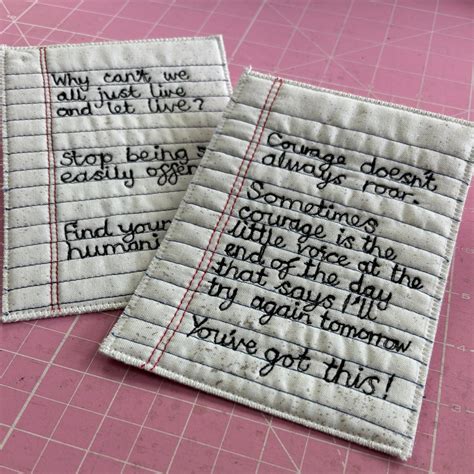 Why can't we
all just live
and let live?
Stop being
easily
Find your
Courage doesn't
always roar.
Sometimes
courage is the
little voice at the
end of the day
that says I'll
try again tomorrow
You've got this!